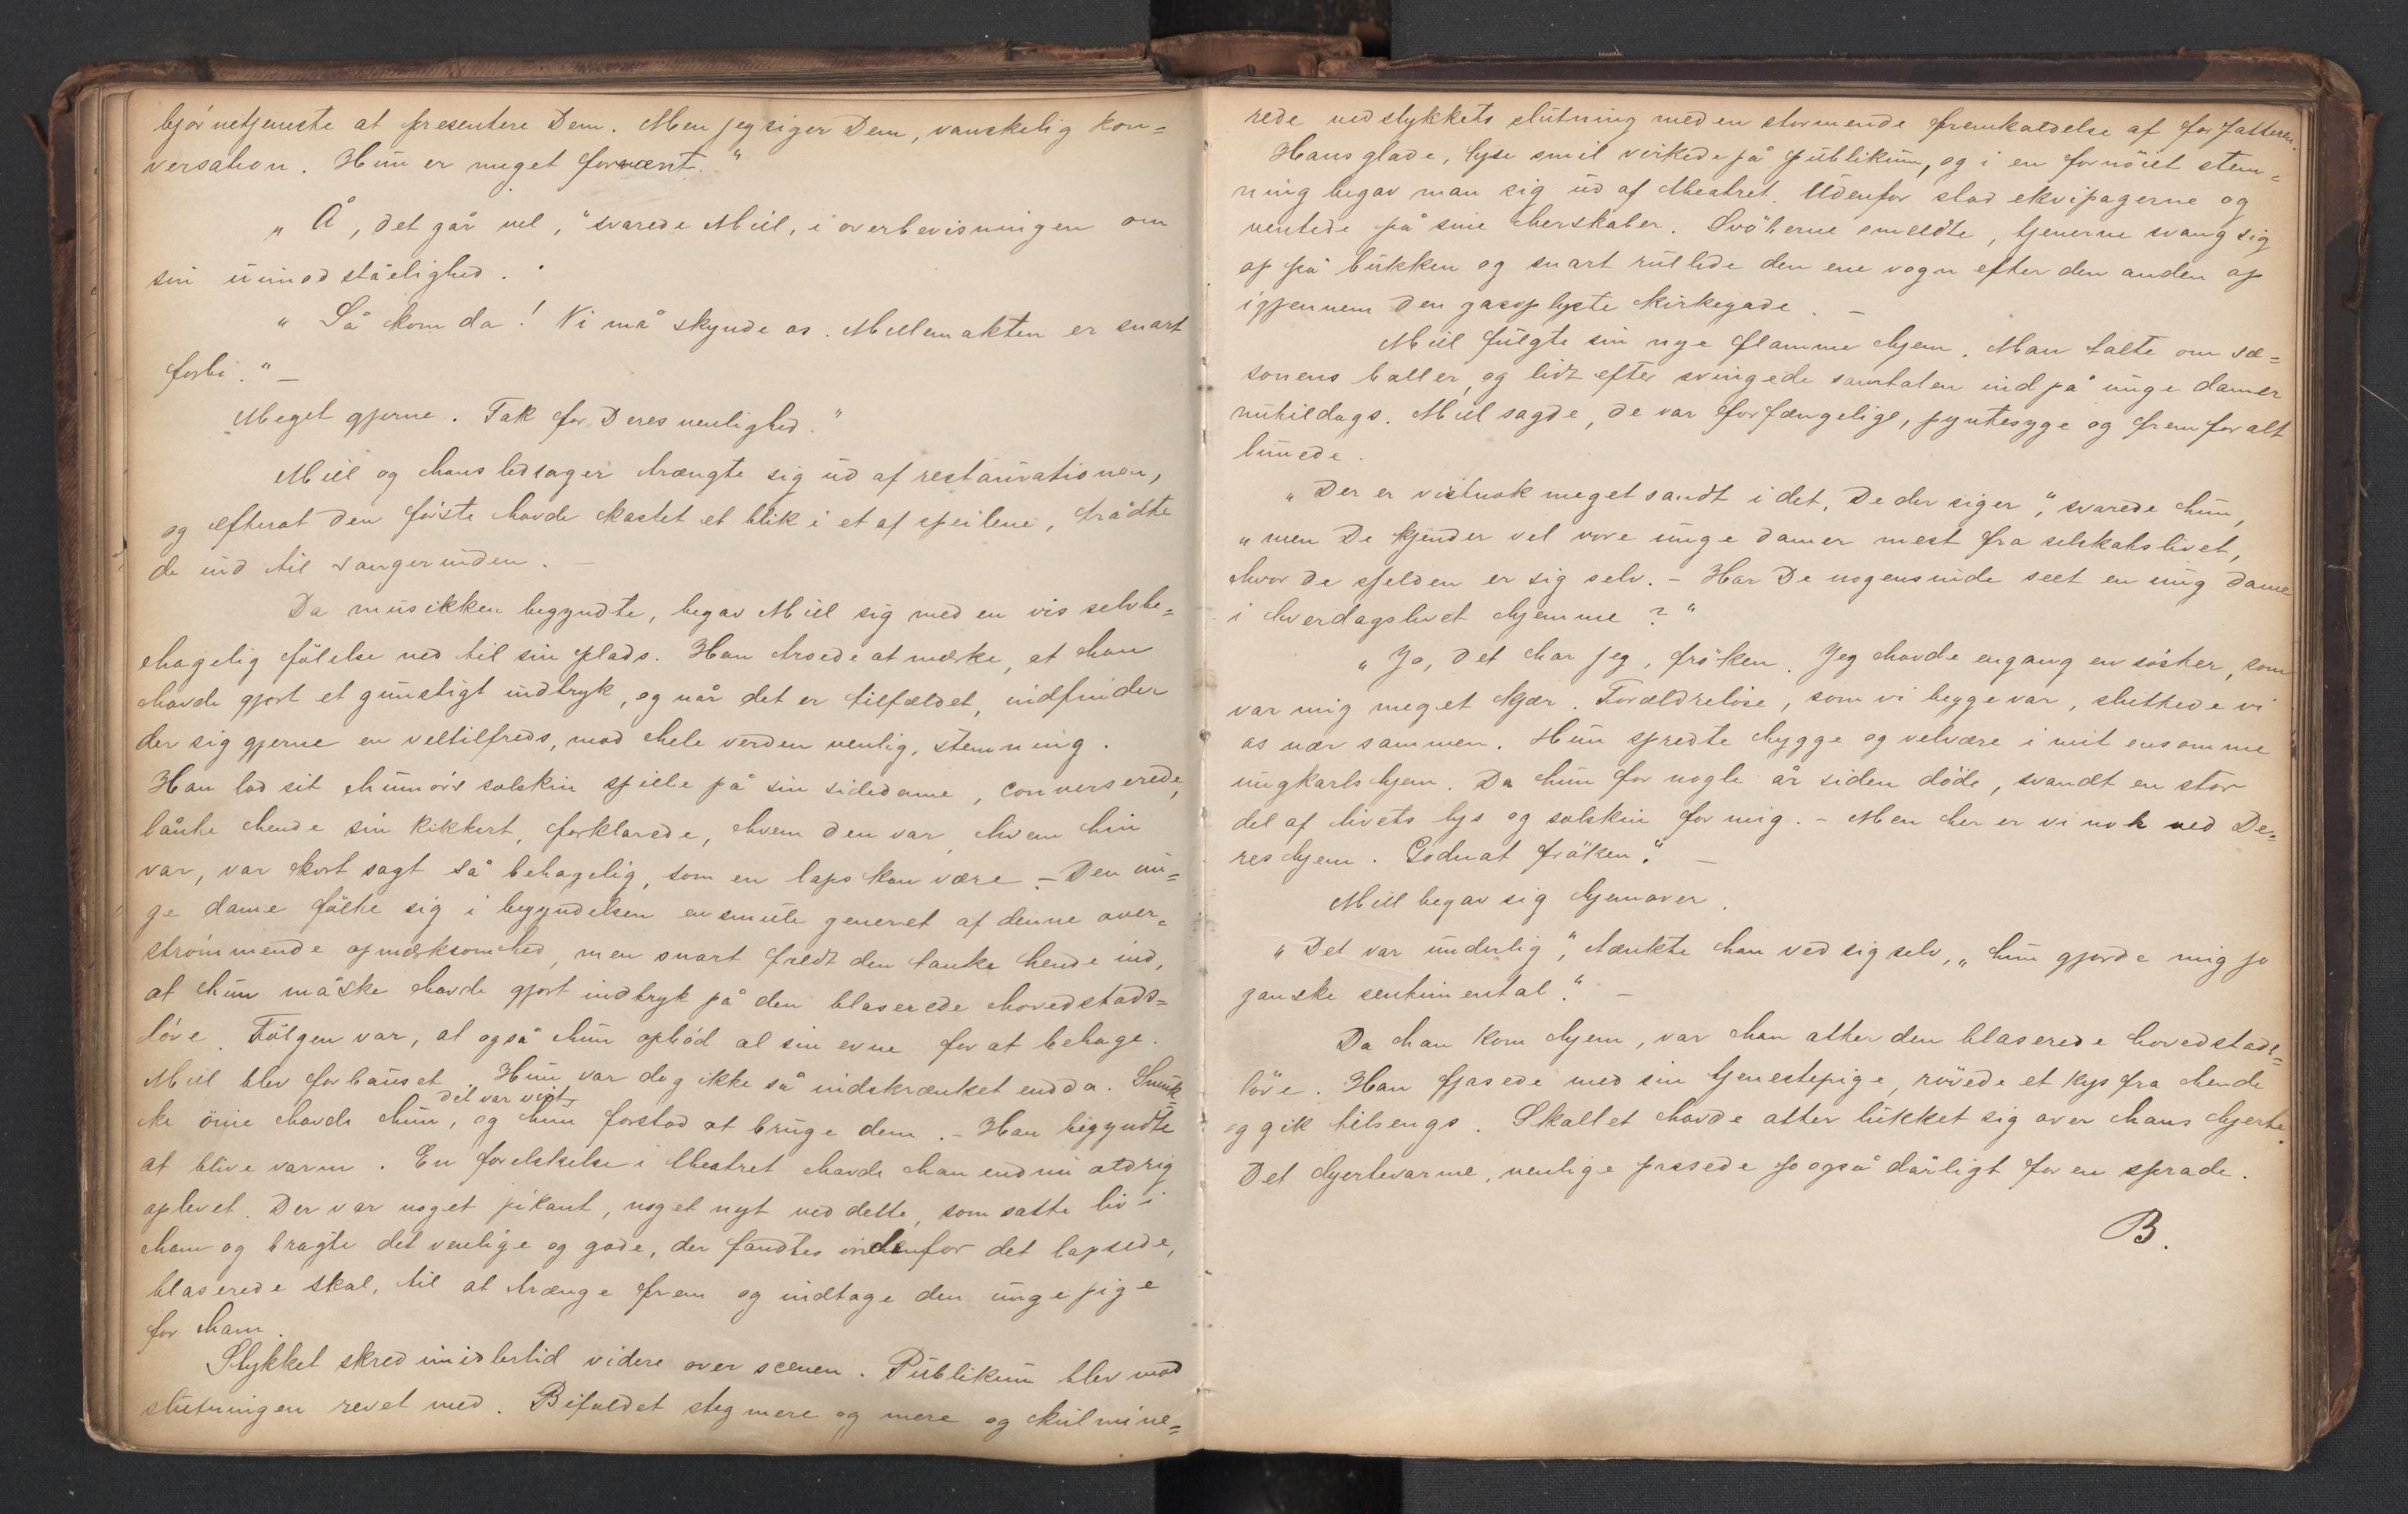 bjørnetjeneste at presentere Dem. Men jeg siger Dem, vanskelig kon=
versation. Hun er meget forvænt."
„Å, det går vel," svarede Miil, i overbevisningen om
sin uimodståelighed.
„Så kom da! Vi må skynde os. Mellemakten er snart
forbi." —
„Meget gjerne. Tak for Deres venlighed."
Miil og hans ledsager trængte sig ud af restaurationen,
og efterat den første havde kastet et blik i et af speilene, trådte
de ind til sangerinden. —
Da musikken begyndte, begav Miil sig med en vis selvbe=
hagelig følelse ned til sin plads. Han troede at mærke, at han
havde gjort et gunstigt indtryk, og når det er tilfældet, indfinder
der sig gjerne en veltilfreds, mod hele verden venlig, stemning.
Han lod sit humørs solskin spille på sin sidedame, converserede,
lånte hende sin kikkert, forklarede, hvem den var, hvem hin
var, var kort sagt så behagelig, som en laps kan være. – Den un=
ge dame følte sig i begyndelsen en smule generet af denne over=
strømmende opmærksomhed, men snart fældt den tanke hende ind,
at hun måske havde gjort indtryk på den blaserede hovedstads=
løve. Følgen var, at også hun opbød al sin evne for at behage.
Miil blev forbauset. Hun var dog ikke så indskrænket endda. Smuk=
ke øine havde hun, det var vist, og hun forstod at bruge dem. – Han begyndte
at blive varm. En forelskelse i theatret havde han endnu aldrig
oplevet. Der var noget pikant, noget nyt ved dette, som satte liv i
ham og bragte det venlige og gode, der fandtes indenfor det lapsede,
blaserede skal, til at trænge frem og indtage den unge pige
for ham.
Stykket skred imidlertid videre over scenen. Publikum blev mod
slutningen revet med. Bifaldet steg mere og mere og kulmine=
rede ved stykkets slutning med en stormende fremkaldelse af forfatteren.
Hans glade, lyse smil virkede på publikum, og i en fornøiet stem=
ning begav man sig ud af theatret. Udenfor stod ekvipagerne og
ventede på sine herskaber. Svøberne smeldte, tjenerne svang sig
op på bukken og snart rullede den ene vogn efter den anden op
igjennem den gasoplyste kirkegade. —
Miil fulgte sin nye flamme hjem. Man talte om sæ=
sonens baller, og lidt efter svingede samtalen ind på unge damer
nutildags. Miil sagde, de var forfængelige, pyntesyge og fremfor alt
lunede.
„Der er vistnok meget sandt i det, De der siger," svarede hun,
„men De kjender vel vore unge damer mest fra selskabslivet,
hvor de sjelden er sig selv. – Har De nogensinde seet en ung dame
i hverdagslivet hjemme?"
„Jo, det har jeg, frøken. Jeg havde engang en søster, som
var mig meget kjær. Forældreløse, som vi begge var, sluttede vi
os nær sammen. Hun spredte hygge og velvære i mit ensomme
ungkarlshjem. Da hun for nogle år siden døde, svandt en stor
del af livets lys og solskin for mig. – Men her er vi nok ved De=
res hjem. Godnat frøken." —
Miil begav sig hjemover.
„Det var underlig," tænkte han ved sig selv, „hun gjorde mig jo
ganske sentimental." —
Da han kom hjem, var han atter den blaserede hovedstads=
løve. Han fjasede med sin tjenestepige, røvede et kys fra hende
og gik tilsengs. Skallet havde atter lukket sig over hans hjerte.
Det hjertevarme, venlige passede jo også dårligt for en sprade.
B.